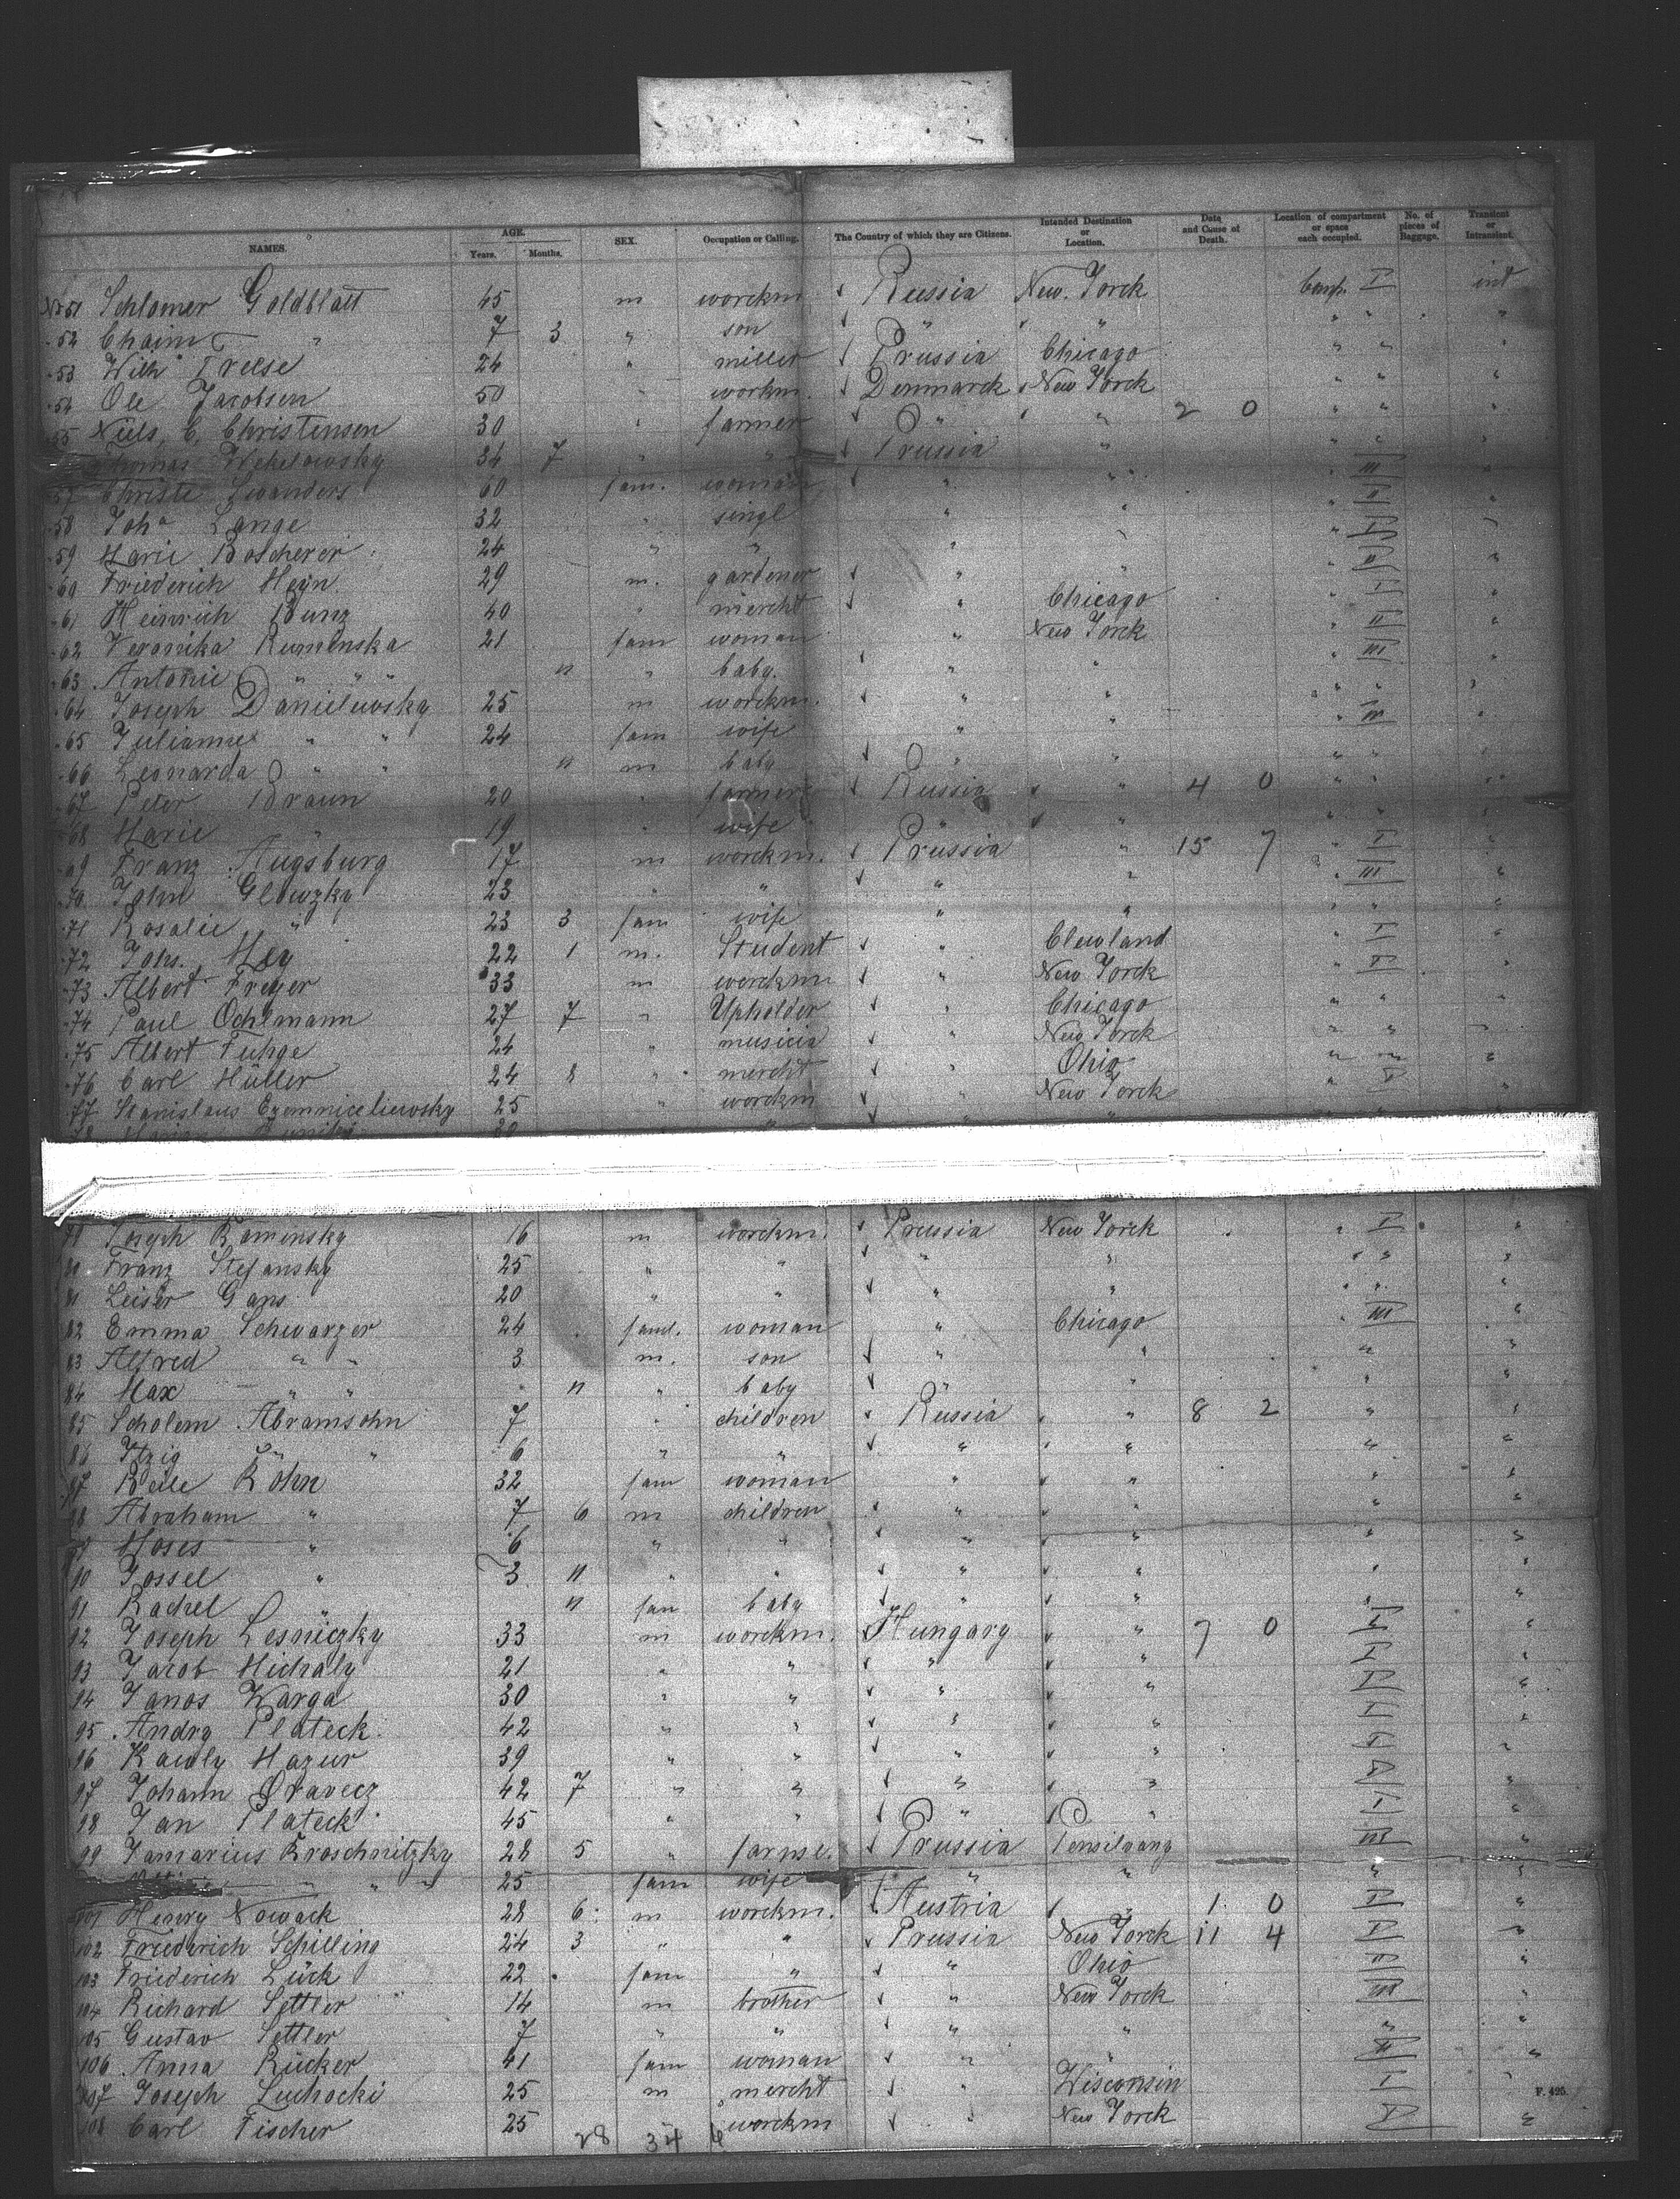 NAMES. AGE. Years. Months. SEX. Occupation or Calling. The Country of which they are Citizens. Intended Destination or Location. Date and Cause of Death. Location of compartment or space each occupied. No. of pieces of Baggage. Transient or Intransient.
No 51 Schlomer Goldblatt 45 m workm Russia New. Yorck Comp. I int
52 Chaim " 7 3 " son " " " " "
53 Wilh Treese 24 " miller Prussia Chicago " " "
54 Ole Jacobsen 50 " workm. Denmarck New Yorck " " "
55 Niels, C, Christensen 30 " farmer " " 2 0 " " "
Thomas Wehelowsky 34 7 " " Prussia " " " "
57 Christe 60 fam. woman " " " III "
58 Joha Lange 32 " singl " " " "
59 Marie Boscherer 24 " " " " " "
60 Friederich Heyn 29 m. gardener " " " "
61 Heinrich Bunz 40 " mercht " Chicago " "
62 Veronika Ruminska 21 fam woman " New Yorck " III
63 Antonie " " 11 " baby. " " "
64 Joseph Danielewsky 25 m worckm. " " " " "
65 Julianne " " 24 fam wife " " " III "
66 Leonarda " " 11 m baby " " " " "
67 Peter Braun 20 " farmer Russia " 4 0 " " "
68 Marie " 19 " wife " " " " "
69 Franz Augsburg 17 m worckm. Prussia " 15 7 " I "
70 John Glowzky 23 " " " " " III "
71 Rosalie " 23 3 fam wife " " " " "
72 Johs. Mey 22 1 m. Student " Clewland " I "
73 Albert Freyer 33 m worckm " New Yorck " "
74 Paul Oehlmann 27 7 " Upholder " Chicago " " "
75 Albert Fuhge 24 " musicia " New Yorck " " "
76 Carl Müller 24 " mercht " Ohio " " "
77 Stanislaus 25 " worckm " New Yorck " "
Joseph Kaminsky 16 m worckm. Prussia New Yorck " "
Franz Stefansky 25 " " " " " " "
Leiser Gans 20 " " " " " " "
82 Emma Schwarzer 24 faml. woman " Chicago " III "
83 Alfred " " 3 m. son " " " "
84 Max " " 11 " baby " " " "
85 Scholem Abramsohn 7 " children Russia " 8 2 " "
86 Itzig " " 6 " " " " " "
87 Beile Kohn 32 fam woman " " " "
88 Abraham " 7 6 m children " " " "
Moses " 6 " " " " " "
90 Jossel " 3 11 " " " " " "
91 Rachel " 11 fam baby " " " "
92 Joseph Lesniczky 33 m worckm. Hungary " 7 0 "
93 Jacob Michaly 21 " " " " "
94 Janos Warga 30 " " " " "
95 Andry Plateck 42 " " " " "
96 Kawly Mazur 39 " " " " "
97 Johann Dravecz 42 7 " " " " "
98 Jan Plateck 45 " " " " "
99 Tamarius Kroschnitzky 28 5 " farme. Prussia Pensilvang III "
" " 25 fam wife " " " "
101 Henry Nowack 28 6 m worckm. Austria " 1 0 "
102 Friederich Schilling 24 3 " " Prussia New Yorck 11 4 "
103 Friederich Lück 22 fam " " Ohio II "
104 Richard Settler 14 m brother " New Yorck III "
105 Gustav Settler 7 " " " " " "
106 Anna Rücker 41 fam woman " " II "
107 Joseph Luchocki 25 m mercht " Wisconsin I "
108 Carl Fischer 25 worckm " New Yorck "
F. 495.
28 34